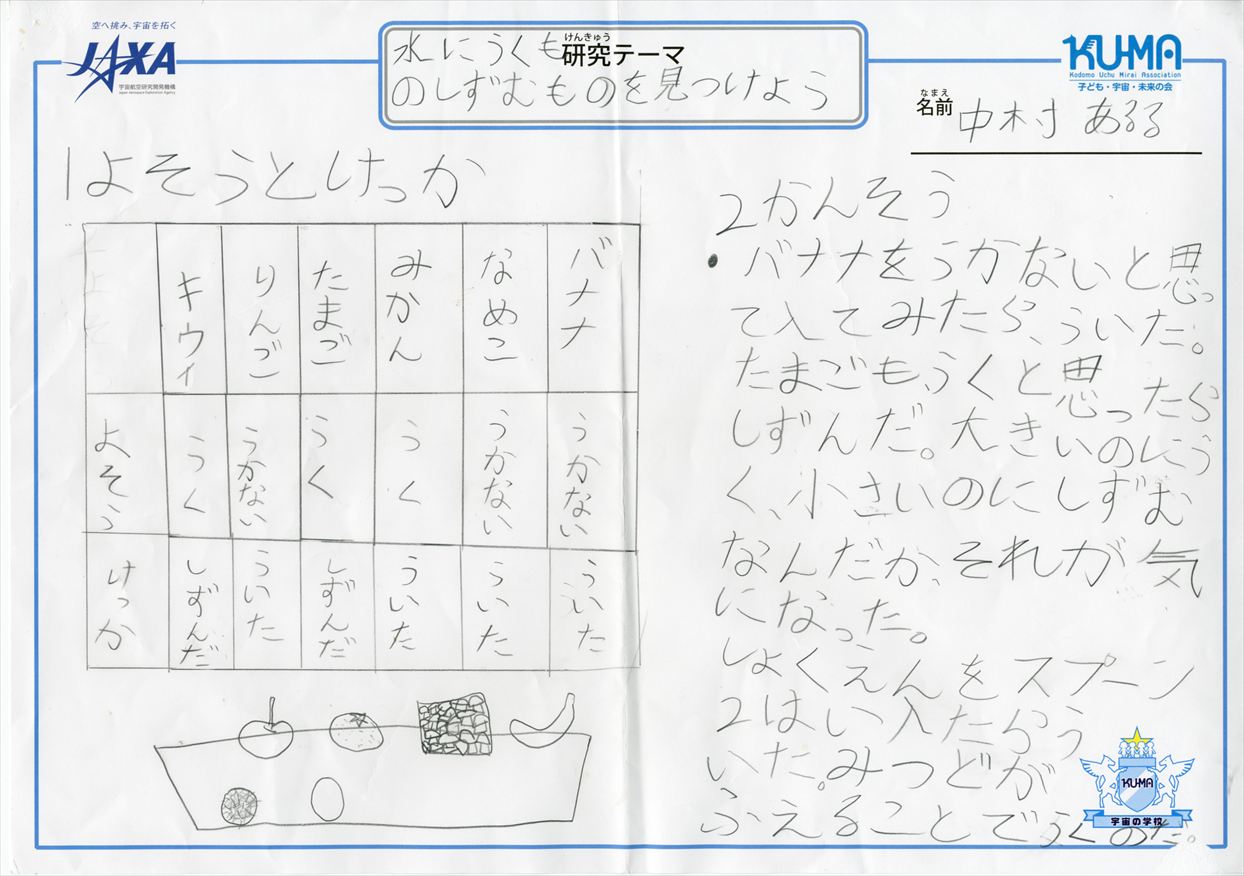 空へ挑み、宇宙を拓く
JAXA
宇宙航空研究開発機構
Japan Aerospace Exploration Agency
けんきゅう
研究テーマ
水にうくも
のしずむものを見つけよう
KU-MA
Kodomo Uchu Mirai Association
子ども・宇宙・未来の会
なまえ
名前
中村 あるる
1よそうとけっか
キウイ りんご たまご みかん なめこ バナナ
よそう うく うかない うく うく うかない うかない
けっか しずんだ ういた しずんだ ういた ういた ういた
2かんそう
・バナナをうかないと思っ
て入てみたら、ういた。
たまごもうくと思ったら
しずんだ。大きいのにう
く、小さいのにしずむ
なんだか、それが気
になった。
しょくえんをスプーン
2はい入たらう
いた。みつどが
ふえることでうくのだ。
KU-MA
宇宙の学校